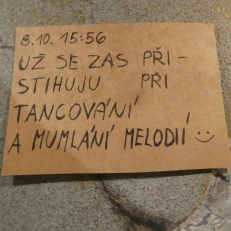 8.10. 15:56
UŽ SE ZAS PŘI-
STIHUJU PŘI
TANCOVÁNÍ
A MUMLÁNÍ MELODIÍ :-)